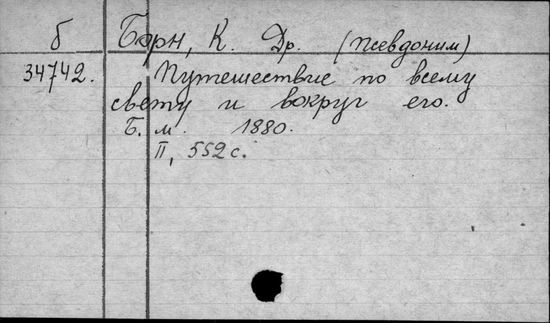 б Бэрн, К. Др. (псевдоним)
34742. Путешествие по всему
свету и вокруг его.
Б. м. 1880.
II, 552 с.